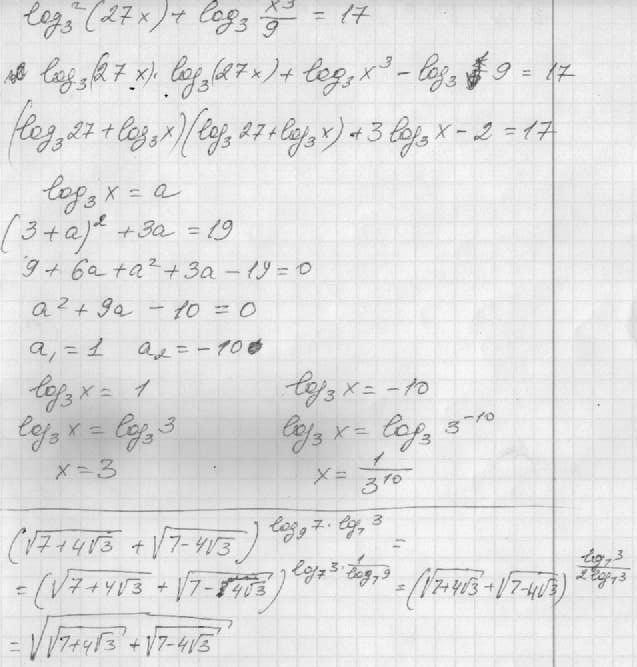 log₃²(27x) + log₃ x³/9 = 17
log₃(27x)·log₃(27x) + log₃x³ - log₃ 9 = 17
(log₃27 + log₃x)(log₃27 + log₃x) + 3log₃x - 2 = 17
log₃x = a
(3+a)² + 3a = 19
9 + 6a + a² + 3a - 19 = 0
a² + 9a - 10 = 0
a₁ = 1 a₂ = -10
log₃x = 1 log₃x = -10
log₃x = log₃3 log₃x = log₃ 3⁻¹⁰
x = 3 x = 1/3¹⁰
(√(7+4√3) + √(7-4√3))^(log₉7·log₇3) =
= (√(7+4√3) + √(7-4√3))^(log₇3·1/log₇9) = (√(7+4√3) + √(7-4√3))^(log₇3/2log₇3)
= √(√(7+4√3) + √(7-4√3))